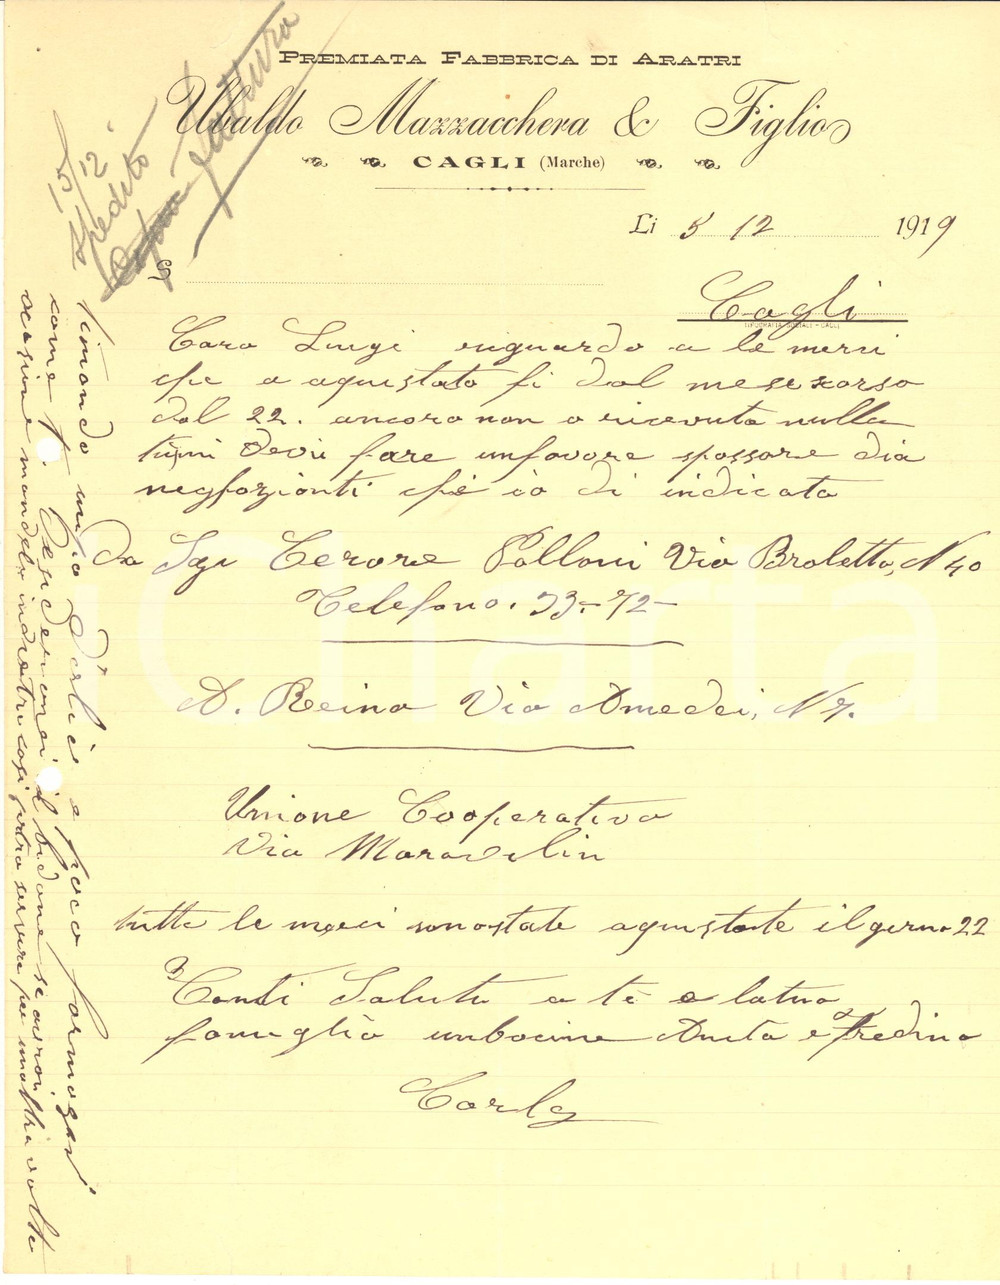 PREMIATA FABBRICA DI ARATRI
Ubaldo Mazzacchera & Figlio
CAGLI (Marche)
Li 5 12 1919
S
15/12
Spedito
fattura
Cagli
TIPOGRAFIA SOCIALE - CAGLI
Caro Luigi riguardo a le merci
che o aquistato fi dal mese scorso
dal 22. ancora non o ricevuto nulla
tumi devi fare unfavore spassare dia
neghozianti che io di indicato
da Sgr Cerore Polloni Via Broletto, N 40
Telefono. 73-72-
A. Reina Via Amedei, N 7.
Unione Cooperativa
Via Meravelin
tutte le merci sonostate aquistate il gorno 22
Tanti Saluti a te e latua
famiglia unbacine Anita e Fredina
Carlo
Timando unpo d'olio e poco formagio
come
ocasione
iCharta